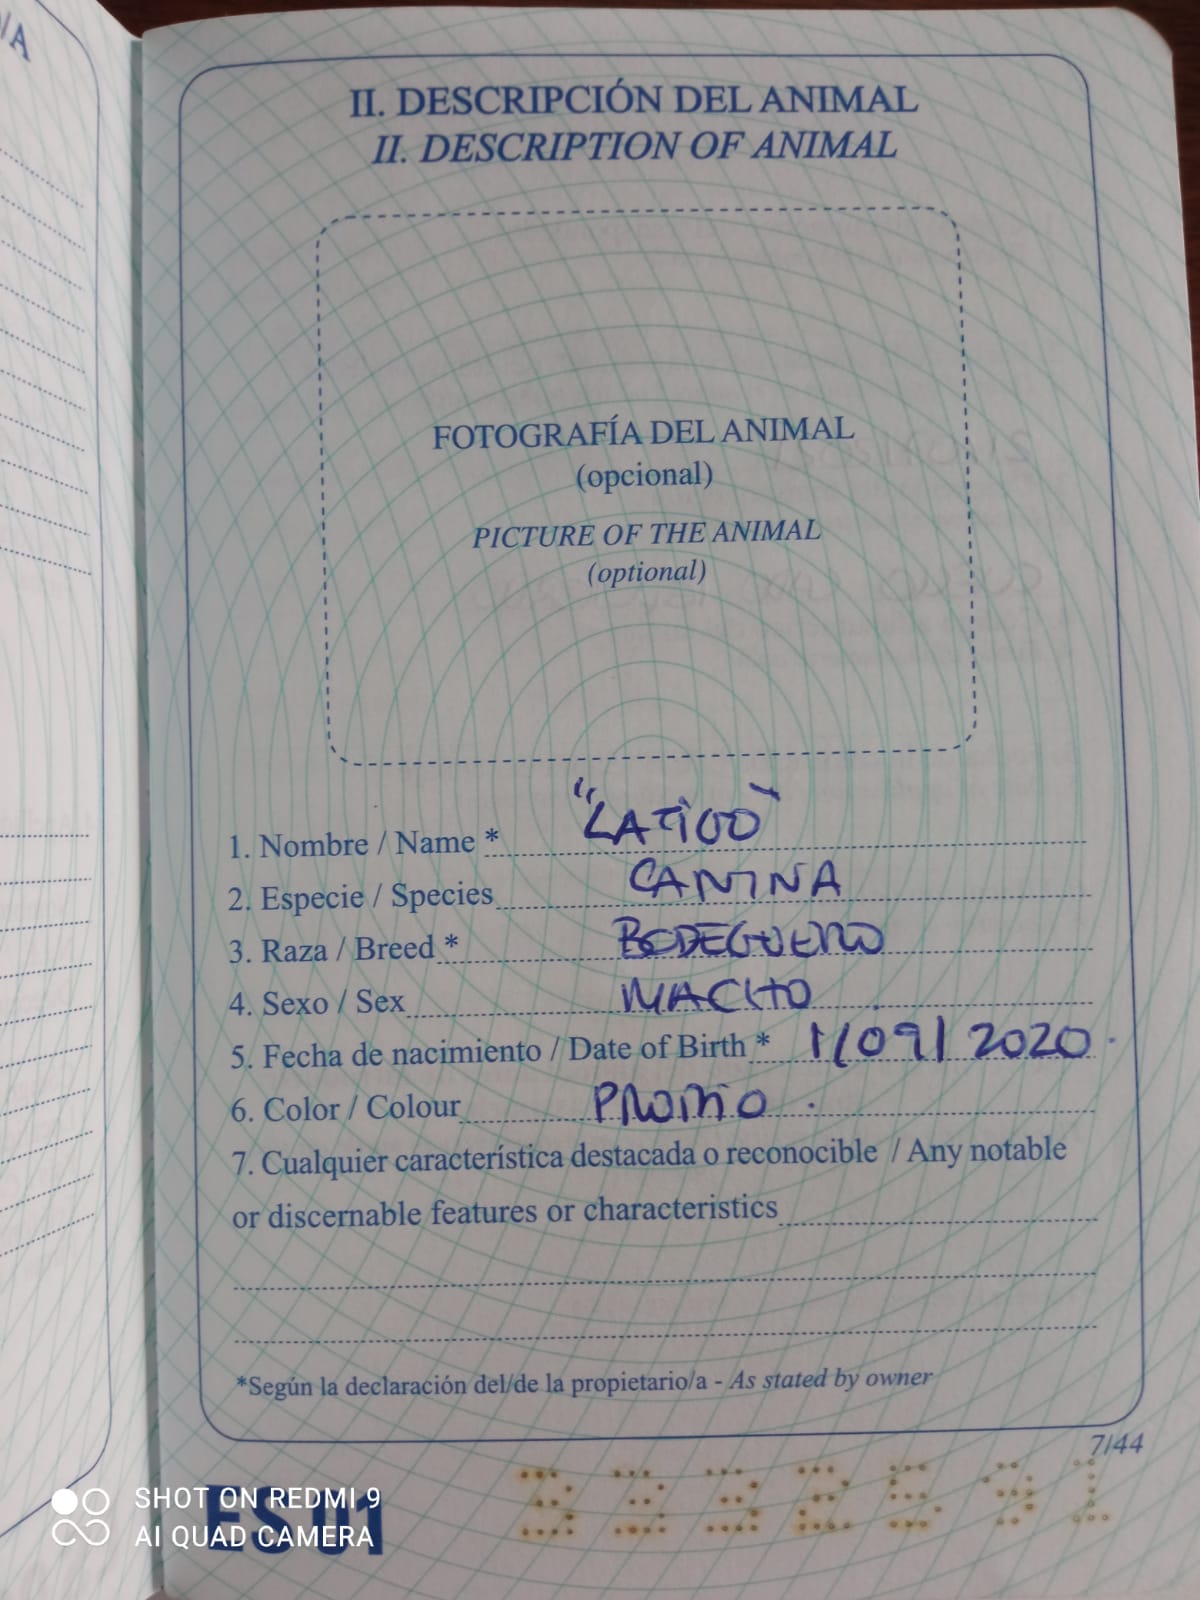 /A
II. DESCRIPCIÓN DEL ANIMAL
II. DESCRIPTION OF ANIMAL
FOTOGRAFÍA DEL ANIMAL
(opcional)
PICTURE OF THE ANIMAL
(optional)
1. Nombre / Name * "LATIGO"
2. Especie / Species CANINA
3. Raza / Breed * BODEGUERO
4. Sexo / Sex MACHO
5. Fecha de nacimiento / Date of Birth * 1/09/2020.
6. Color / Colour PROPIO.
7. Cualquier característica destacada o reconocible / Any notable
or discernable features or characteristics
*Según la declaración del/de la propietario/a - As stated by owner
7/44
ES 01
SHOT ON REDMI 9
AI QUAD CAMERA